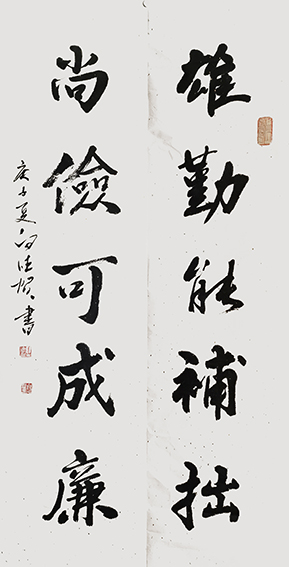 雄勤能補拙
尚儉可成廉
庚子夏向德賢書